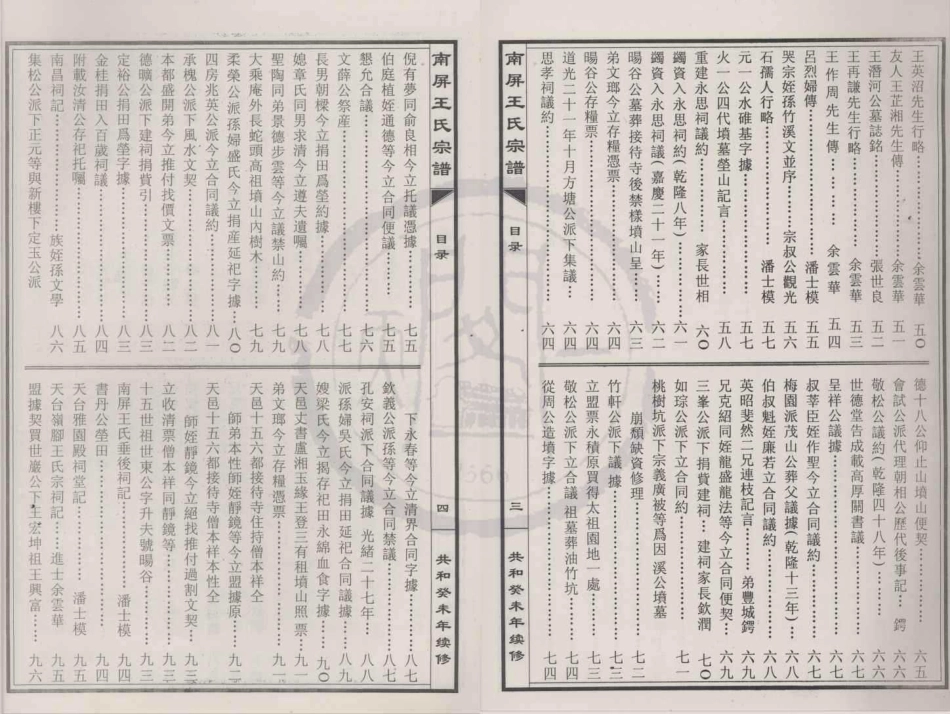 王英沼先生行略……余雲華 五〇
友人王芷湘先生傳……余雲華 五一
王潛河公墓誌銘……張世良 五二
王再謙先生行略……余雲華 五三
王作周先生傳……余雲華 五四
呂烈婦傳……潘士模 五五
哭宗姪孫竹溪文並序……宗叔公觀光 五六
石孺人行略……潘士模 五七
元一公水碓基字據……五七
火一公四代墳墓塋山記言……五八
重建永思祠議約……家長世相 六〇
蠲資入永思祠議約(乾隆八年)……六一
蠲資入永思祠議(嘉慶二十一年)……六二
暘谷公墓葬接待寺後禁樣墳山呈……六三
弟文瑯今立存糧憑票……六四
暘谷公存糧票……六四
道光二十一年十月方塘公派下集議……六四
思孝祠議約……六四
德十八公仰止山墳山便契……六五
會試公派代理朝相公歷代後事記…鍔 六六
敬松公議約(乾隆四十八年)……六六
世德堂告成載高厚關書議……六七
呈祥公議據……六七
叔莘臣姪作聖今立合同議約……六七
梅園派茂山公葬父議據(乾隆十三年)…六八
伯叔魁姪廉若立合同議約……六八
英昭斐然二兄連枝記言……弟豐城鍔 六九
兄克紹同姪龍盛龍法等今立合同便契…六九
三峯公派下捐費建祠…建祠家長欽潤 七〇
如琮公派下立合同約……七一
桃樹坑派下宗義廣被等爲因 溪公墳墓
崩頹缺資修理……七二
竹軒公派下議據……七三
立盟票永積原買得太祖園地一處……七三
敬松公派下立合議 祖墓葬油竹坑……七四
從周公造墳字據……七四
南屏王氏宗譜
目录
三
共和癸未年续修
倪有夢同俞良相今立托議憑據……七五
伯庭植姪通德等今立合同便議……七五
懇允合議……七六
文薛公祭産……七七
長男朝樑今立捐田爲塋約據……七八
媳章氏同男求清今立遵夫遺囑……七八
聖陶同弟景德步雲等今立議禁山約……七九
大乘庵外長蛇頭高祖墳山內樹木……七九
柔榮公派孫婦盛氏今立捐産延祀字據…八〇
四房兆英公派今立合同議約……八一
承槐公派下風水文契……八二
本都盛開弟今立推付找價文票……八二
德曠公派下建祠捐貲引……八三
定裕公捐田爲塋字據……八三
金桂捐田入百歲祠議……八四
附載汝清公存祀托囑……八五
南昌祠記……族姪孫文學 八六
集松公派下正元等與新樓下定玉公派
下永春等今立清界合同字據……八七
欽義公派孫等今立合同禁議……八七
孔安祠派下合同議據 光緒二十七年…八八
派孫婦吳氏今立捐田延祀合同議據…八九
嫂梁氏今立揭存祀田永綿血食字據…九〇
天邑丈書盧湘玉緣王登三有租墳山照票…九一
弟文瑯今立存糧憑票……九一
天邑十五六都接待寺住持僧本祥全
師弟本性師姪靜鏡等今立盟據原…九二
天邑十五六都接待寺僧本祥本性全
師姪靜鏡今立絕找推付過割文契…九三
立收清票僧本祥同靜鏡等……九三
十五世祖世東公字升夫號暘谷……九三
南屏王氏垂後祠記……潘士模 九四
書丹公塋田……九四
天台雅園殿祠堂記……潘士模 九五
天台嶺腳王氏宗祠記……進士余雲華 九五
盟據契買世巖公下主宏坤祖王興富……九六
南屏王氏宗譜
目录
四
共和癸未年续修